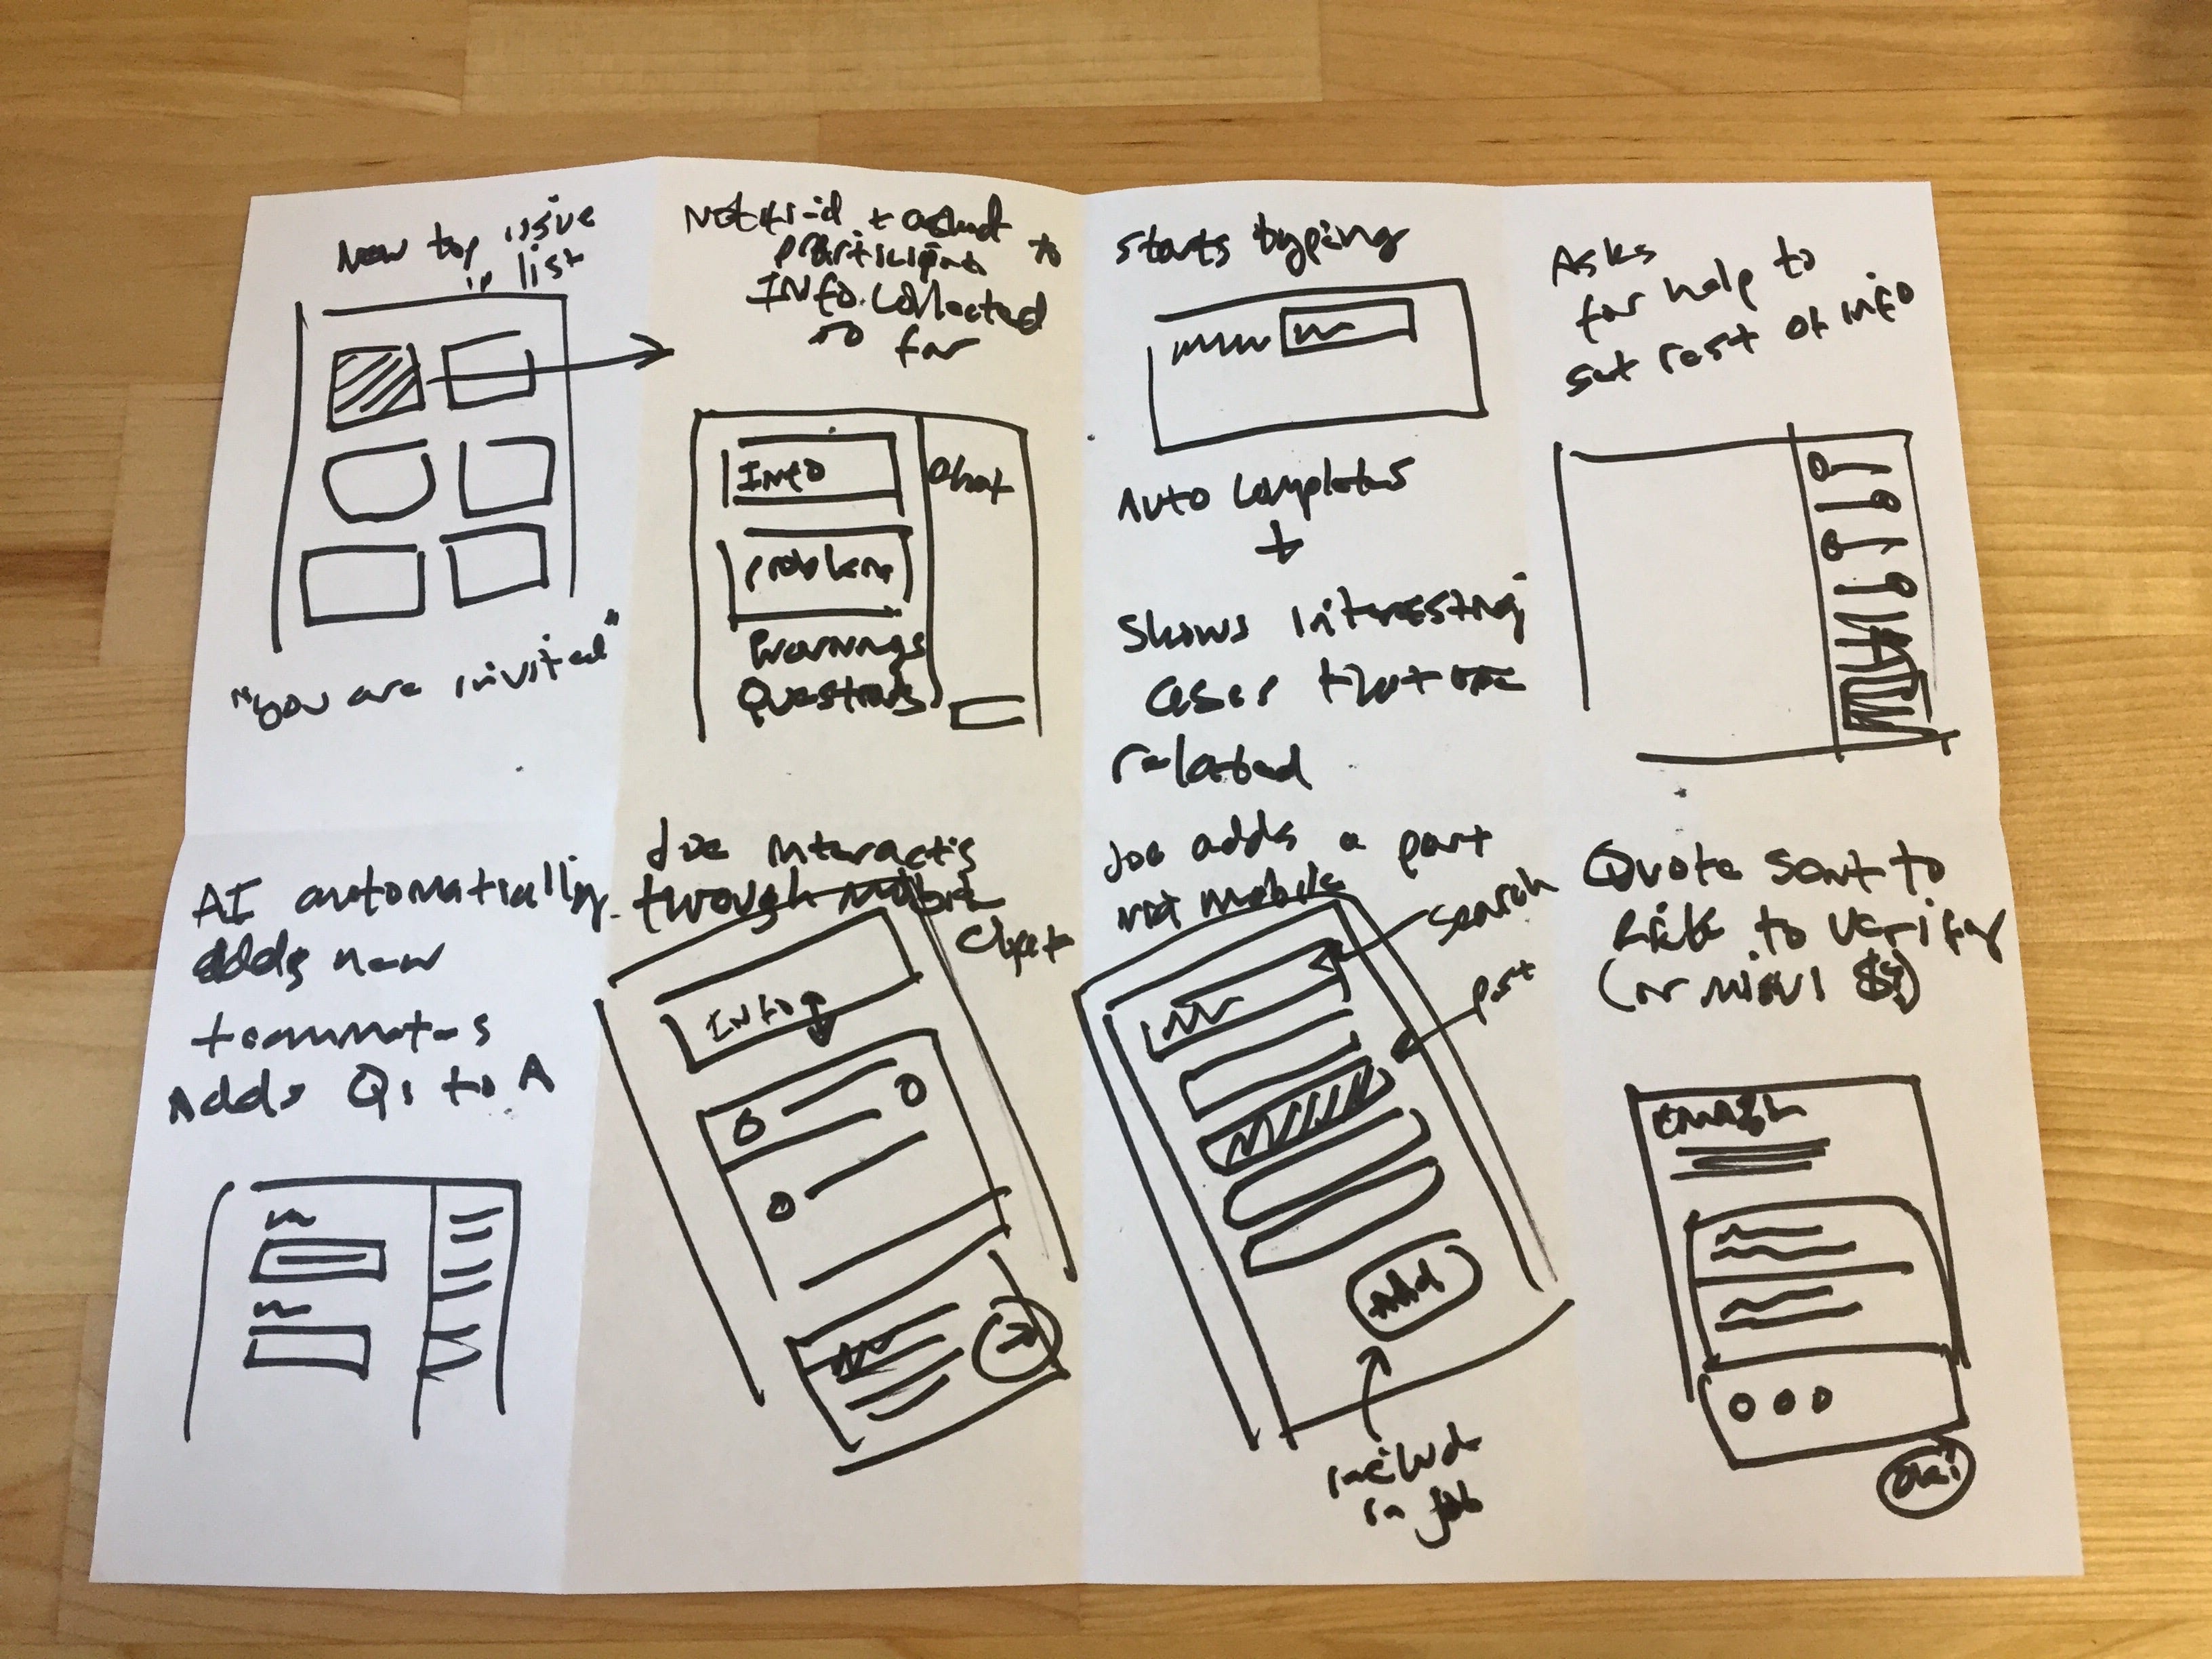 New top issue
in list
"you are invited"
to
participate
Info collected
so far
Info
Chat
Problem
Warnings
Questions
Starts typing
Auto completes
+
Shows interesting
that are
related
Asks
for help to
rest of info
AI automatically
adds new
teammates
Adds Qs to A
Joe
through mobile
chat
Info
Joe adds a part
via mobile
search
part
Add
include
in job
Quote sent to
to verify